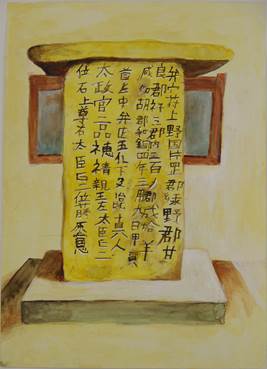 弁官苻上野国片罡郡緑野郡甘
良郡并三郡内三百戸郡成給羊
成多胡郡和銅四年三月九日甲寅
宣左中弁正五位下多治比真人
太政官二品穂積親王左太臣正二
位石上尊右太臣正二位藤原尊